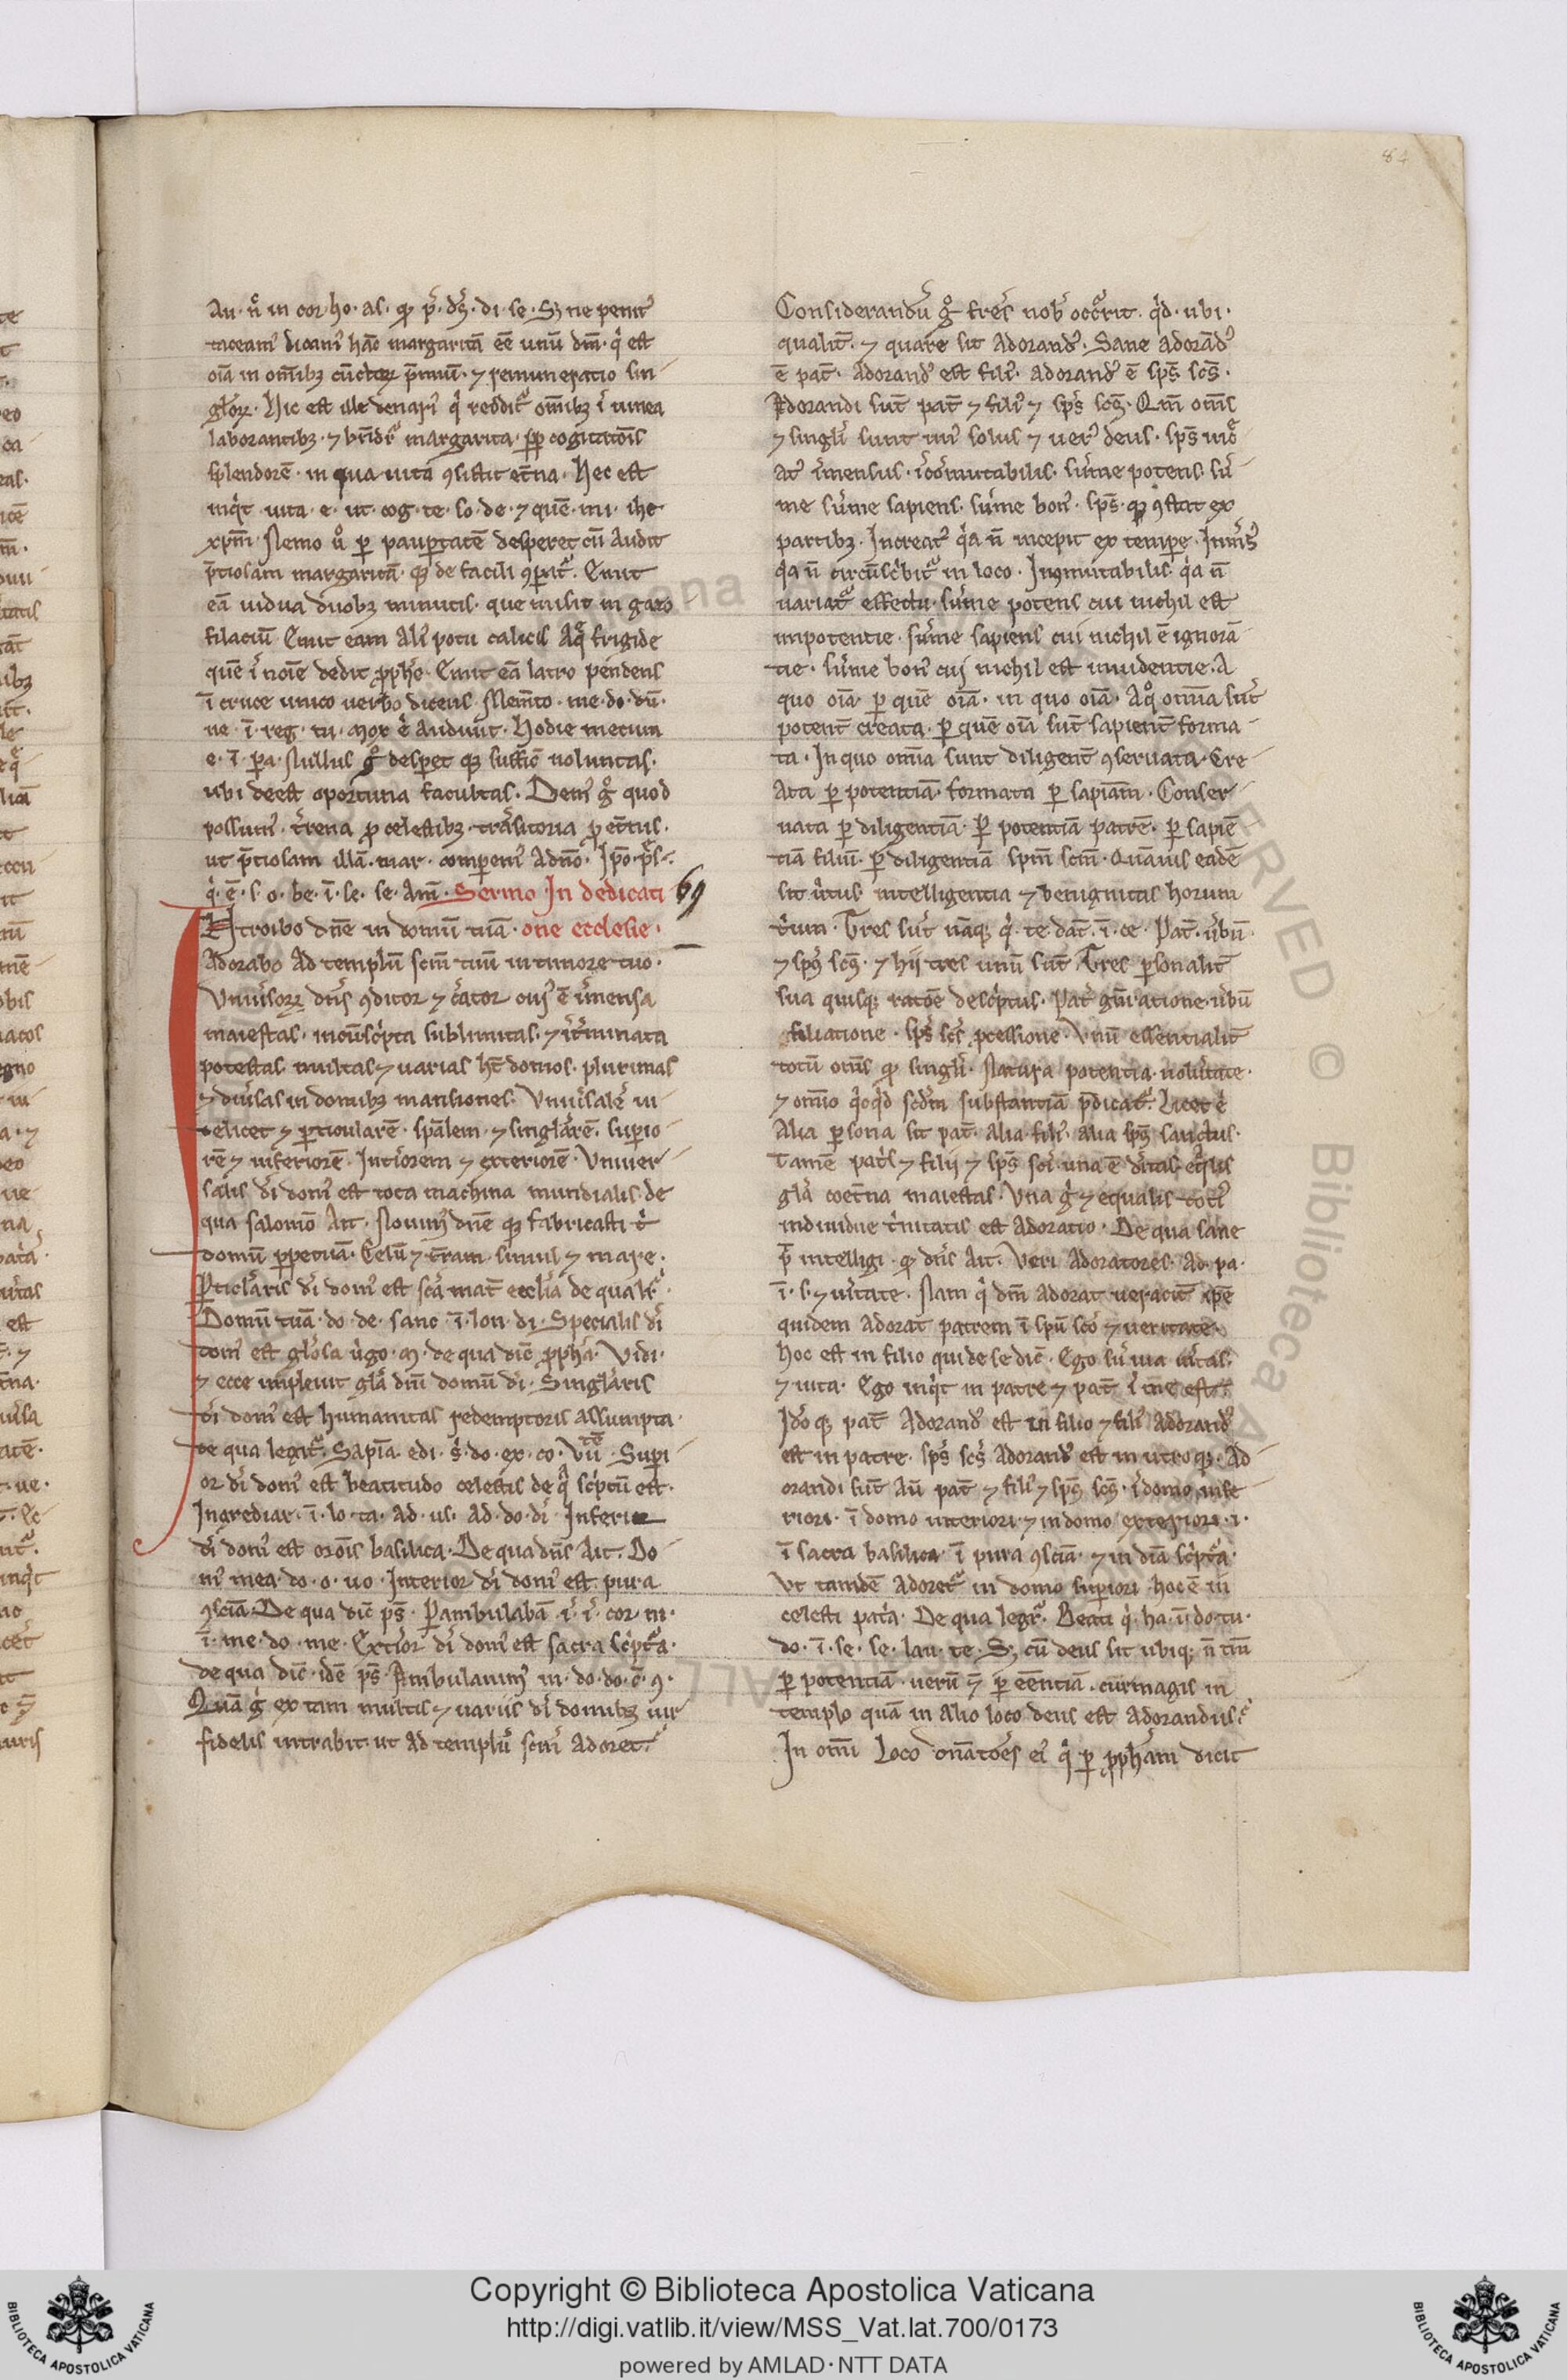 84
Au· n̊ in cor ho· as· ꝙ p̄· dẜ· di· se· Sꝫ ne penit᷒
taceam᷒ dicam᷒ hāc margaritā eē unū dn̄m· q̇ est
oīa in om̄ibꝫ cūctoꝝ p̄miū· ⁊ remuneratio sin
gloꝝ· Hic est ille denari᷒ q̇ reddit᷑ om̄ibꝫ ī uinea
laborantibꝫ· ⁊
splendorē· in qua uita ꝯsistit et̄na· Hec est
inqͥt uita· e· ut· cog· te· so· de· ⁊ quē· mi· ihe·
xp̄m· Nemo ů ꝑ paupertatē desperet cū audit
p̄tiosam margaritā· qꝫ de facili ꝯpat᷑· Emit
eā uidua duobꝫ minutis· que misit in gazo
filaciū· Emit eam ali᷒ potu calicis aqᷓ frigide
quē ī noīe dedit ꝓphe· Emit eā latro pendens
ī cruce unico uerbo dicens· Mem̄to· me· do· dū·
ue· ī· reg· tu· mox ė audiuit· Hodie mecum
e· ī· pa· Nullus g̊ despet qꝫ suffic̄ uoluntas·
ubi deest oportuna facultas· Dem᷒ g̊ quod
possum᷒· t̄rena ꝓ celestibꝫ· trāsitoria ꝓ et̄nis·
ut p̄tiosam illā· mar· comperem᷒
q̇· ē· s· o· be· ī· se· se· Am̄· Sermo In dedicati 69
Introibo dn̄e in domū tuā· one ecclesie·
Adorabo ad templū scm̄ tuū in timore tuo·
Uniu̓soꝝ dn̄s ꝯditor ⁊ c̄ator cui᷒ ē īmensa
maiestas· incircūscͥpta sublimitas· ⁊ īt̄minata
potestas multas ⁊ uarias ht̄ domos· plurimas
⁊ diu̓sas in domibꝫ mansiones· Uniu̓salē ui
delicet ⁊ ꝑticularē· spālem· ⁊ singlarē· supio
rē ⁊ inferiorē· Int̓iorem ⁊ exteriorē· Uniuer
salis di̓ dom᷒ est tota machina mundialis· de
qua salomō Ait· Nouim᷒ dn̄e qꝫ fabricasti t̓
domū ꝑpetuā· Celū ⁊ t̄ram· simul ⁊ mare·
Ꝑticl̓aris di̓ dom᷒ est scā mat̄ eccl̓ia de qua
Domū tuā· do· de· sanc· ī· lon· di· Specialis di̓
dom᷒ est gl̓osa u̓go· M· de qua dic̄ ꝓph̓a· Vidi·
⁊ ecce impleuit gl̓a dn̄i domū di̓· Singl̓aris
di̓ dom᷒ est humanitas redemptoris assumpta·
de qua legit᷑· Sapīa· edi· s̓· do· ex· co· Supi
or di̓ dom᷒ est beatitudo celestis de qᷓ scͥptū est·
Ingrediar· ī· lo· ta· ad· us· ad· do· di̓· Inferior
di̓ dom᷒ est orōis basilica· De qua dn̄s Ait· Do
m᷒ mea· do· o· uo· Interior di̓ dom᷒ est· pura
ꝯsciā· De qua dic̄ ps̄· Ꝑambulabā· ī· ī· cor· m·
ī· me· do· me· Ext̓ior di̓ dom᷒ est sacra scͥpt᷑a·
de qua dic̄· idē ps̄· Ambulauim᷒ in· do· do· c̄· ꝯ·
Quā g̓ ex tam multis ⁊ uariis di̓ domibꝫ uir
fidelis intrabit· ut ad templū scm̄ adoret·
Considerandū g̊ fr̄es nob᷒ occ᷑rit· qͥd· ubi·
qualit̄· ⁊ quare sit adorand᷒· Sane adorād᷒
ē pat̄· adorand᷒ est fili᷒· adorand᷒ ē sps̄ scs̄·
Adorandi sūt pat̄ ⁊ fili᷒ ⁊ sps̄ scs̄· Qm̄ om̄s
⁊ singl̓i sunt un᷒ solus ⁊ uer᷒ deus· sps̄
at᷒ īmensus· īcōmutabilis· sūme potens· sū
me sūme sapiens· sūme bon᷒· sps̄· ꝯstat ex
partibꝫ· Increat᷒ qͥa n̄ incepit ex tempe· Inmēs᷒
qͥa n̄ circūscͥbit᷑ in loco· Inꝯmutabilis· qͥa n̄
uariat᷑ effectu· sūme potens cui nichil est
inpotentie· sūme sapiens cui nichil ē ignorā
tie· sūme bon᷒ cui nichil est inuidentie· A
quo oīa· ꝑ quē oīa· in quo oīa· Aqͦ omnia sūt
potent̄ creata· ꝑ quē oīa sūt sapient̄ forma
ta· In quo omīa sunt diligent̄ ꝯseruata· Cre
ata ꝑ potentiā· formata ꝑ sapiam̄· Conser
uata ꝑ diligentiā· Ꝑ potentiā patrē· ꝑ sapiē
tiā filiū· ꝑ diligentiā spm̄ scm̄· Quāuis eadē
sit u̓tus· intelligentia ⁊ benignitas horum
t̓ium· Tres sūt nāqꝫ q̇· te· dāt· ī· ce· Pat̄· u̓bū·
⁊ sps̄ scs̄· ⁊ hij tres unū sūt· Tres ꝑsonalit̄
sua quisqꝫ ratōe descͥptus· Pat̄ gn̄atione· u̓bū
filiatione· sps̄ scs̄ ꝓcessione· Vnū essentialit̄
totū om̄s ꝙ singl̓i· Natura potentia· uolūtate·
⁊ omnīo qͥcqͥd scd̓m substantiā p̄dicat᷑· Licet ė
alia ꝑsona sit pat̄· alia fili᷒· alia sps̄ sanctus·
tamē pat̓s ⁊ filij ⁊ sps̄ sci̓· una ē di̓tas· eqͣlis
gl̓a coet̄na maiestas· Una g̓ ⁊ equalis toti᷒
indiuidue t̓nitatis est adoratio· De qua sane
p̄t intelligi· ꝙ dn̄s Ait· Veri adoratores· ad· pa·
ī· s· ⁊ u̓itate· Nam q̇ dn̄m adorat ueracit̄ ipē
quidem adorat patrem ī spū scō ⁊ ueritate·
hoc est in filio qui de se dic̄· Ego sū uia u̓itas·
⁊ uita· Ego inqͥt in patre ⁊ pat̄ ī me est·
Ido̓ qꝫ pat̄ adorand᷒ est in filio ⁊ fili᷒ adorand᷒
est in patre· sps̄ scs̄ adorand᷒ est in utroqꝫ· Ad
orandi sūt Aū pat̄ ⁊ fili᷒ ⁊ sps̄ scs̄· ī domo infe
riori· ī domo interiori· ⁊ in domo exteriori· i·
ī sacra basilica· ī pura ꝯsciā· ⁊ in diīa scͥpt᷑a·
Vt tandē adoret᷑ in domo supiori· hoc ē in
celesti pat̓a· De qua legr᷑· Beati q̇· ha· ī· do· tu·
do· ī· se· se· lau· te· Sꝫ cū deus sit ubiqꝫ n̄ tm̄
ꝑ potentiā· uerū ⁊ ꝑ eēntiā· cur magis in
templo quā in alio loco deus est adorandus·
In om̄i Loco ei᷒ q̇ ꝑ ꝓph̓am dicit
Copyright © Biblioteca Apostolica Vaticana
http://digi.vatlib.it/view/MSS_Vat.lat.700/0173
powered by AMLAD · NTT DATA
BIBLIOTECA APOSTOLICA VATICANA
BIBLIOTECA APOSTOLICA VATICANA